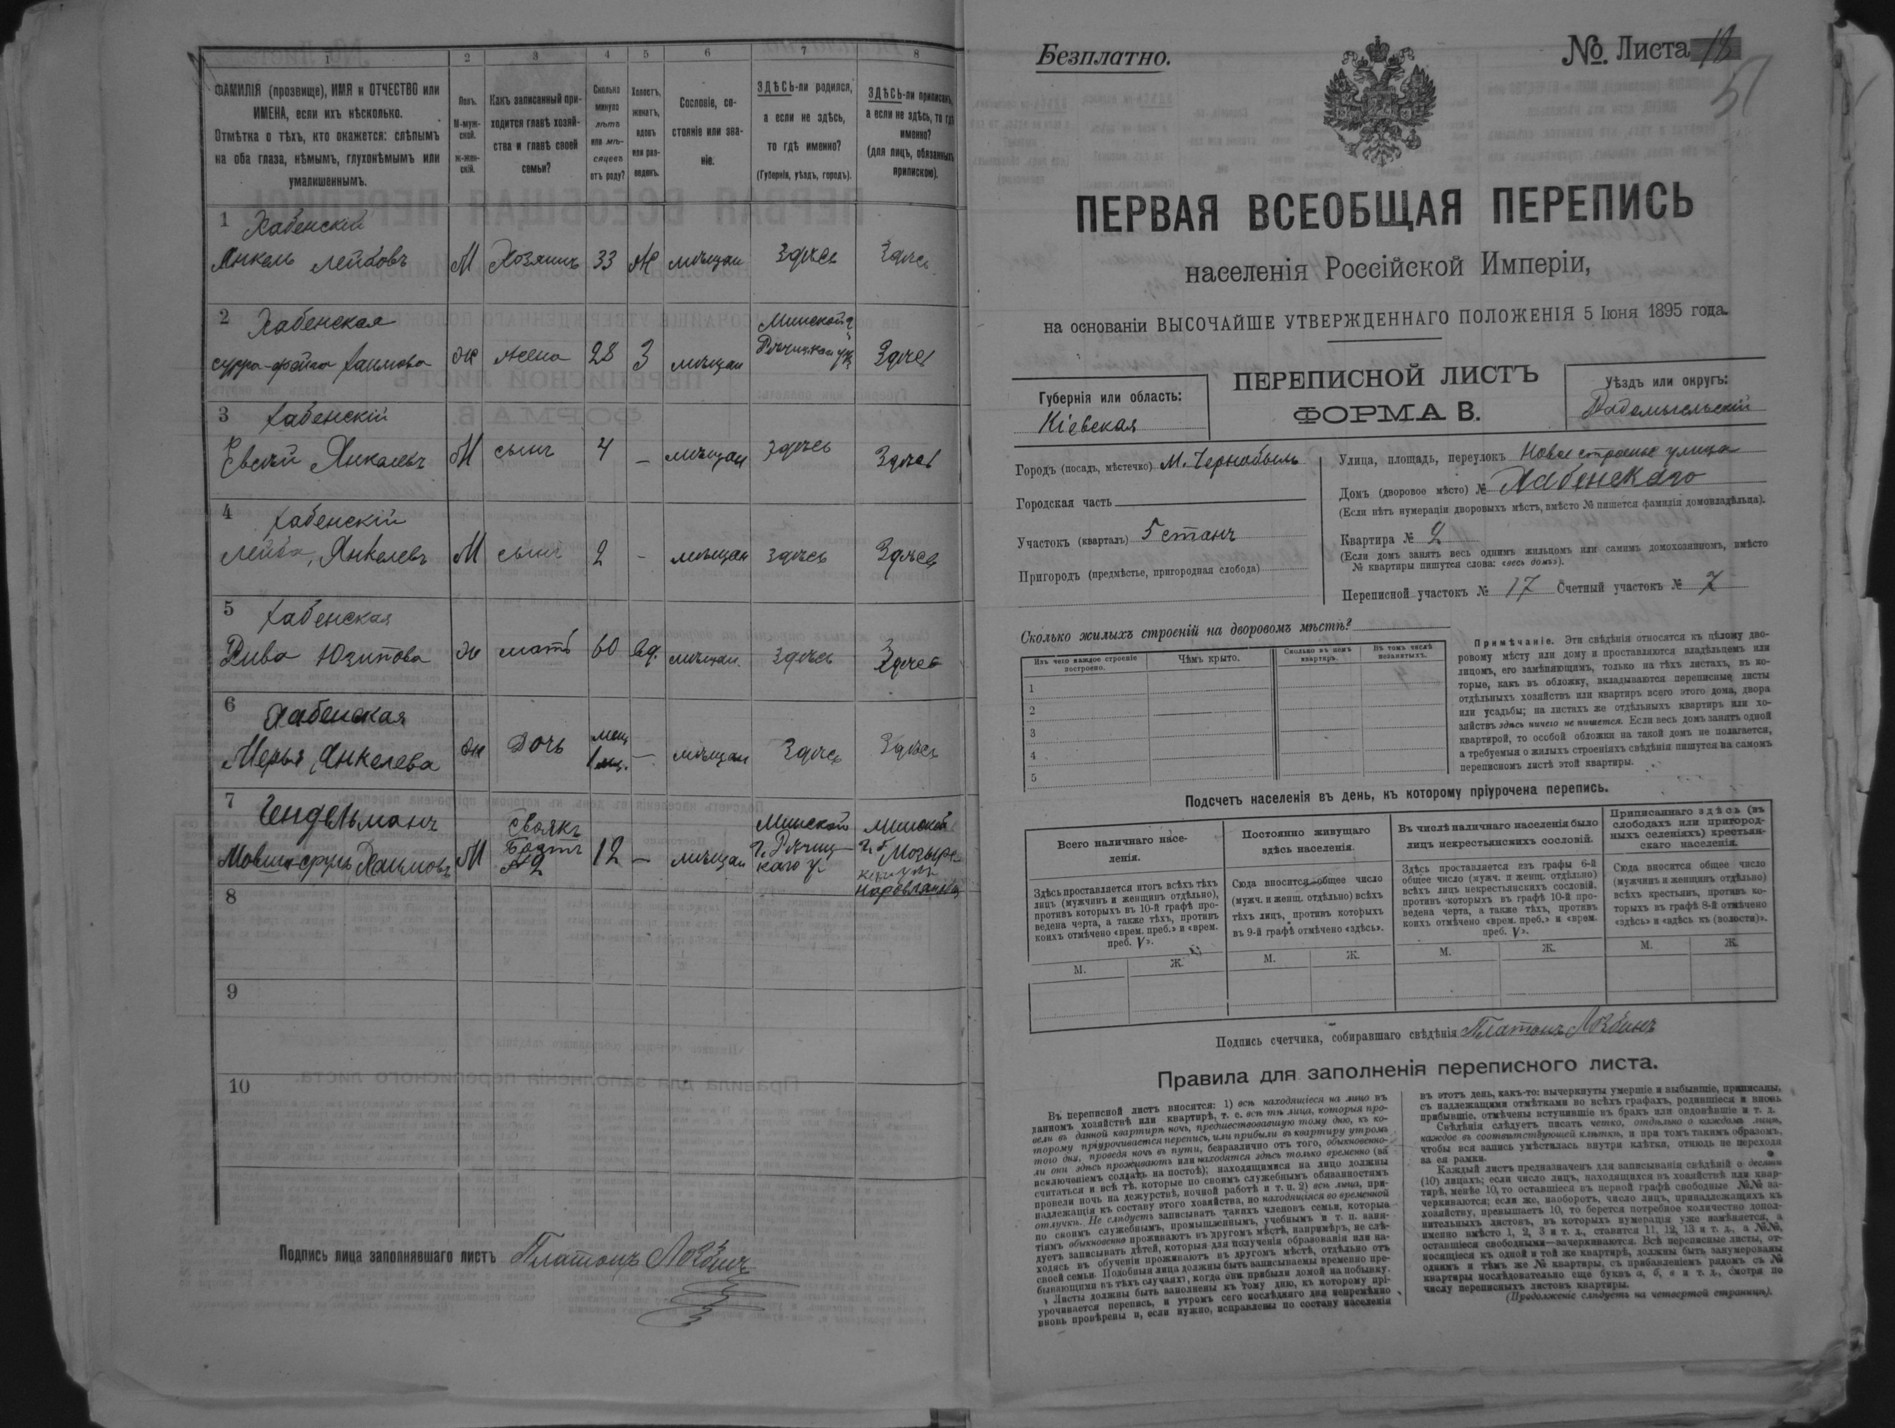 1 2 3 4 5 6 7 8
ФАМИЛІЯ (прозвище), ИМЯ и ОТЧЕСТВО или
ИМЕНА, если ихъ нѣсколько.
Отмѣтка о тѣхъ, кто окажется: слѣпымъ
на оба глаза, нѣмымъ, глухонѣмымъ или
умалишеннымъ.
Полъ.
М-муж-
ской.
Ж-жен-
скій.
Какъ записанный при-
ходится главѣ хозяй-
ства и главѣ своей
семьи?
Сколько
минуло
лѣтъ
или мѣ-
сяцевъ
отъ роду?
Холостъ,
женатъ,
вдовъ
или раз-
веденъ.
Сословіе, со-
стояніе или зва-
ніе.
ЗДѢСЬ-ли родился,
а если не здѣсь,
то гдѣ именно?
(Губернія, уѣздъ, городъ).
ЗДѢСЬ-ли приписанъ,
а если не здѣсь, то гдѣ
именно?
(для лицъ, обязанныхъ
припискою).
1 Хабенскій
Янкель Лейбовъ М Хозяинъ 33 Ж мѣщан Здѣсь Здѣсь
2 Хабенская
Сурра-Фейга Хаимова Ж жена 28 З мѣщан Минской г. Рѣчицкаго у. Здѣсь
3 Хабенскій
Евсей Янкелевъ М сынъ 4 – мѣщан Здѣсь Здѣсь
4 Хабенскій
Лейба Янкелевъ М сынъ 2 – мѣщан Здѣсь Здѣсь
5 Хабенская
Рива Юзипова Ж мать 60 вд. мѣщан. Здѣсь Здѣсь
6 Хабенская
Мерья Янкелева Ж Дочь 1 – мѣщан Здѣсь Здѣсь
7 Гендельманъ
Мовша-Сруль Хаимовъ М Своякъ 12 – мѣщан
Минской
г. Рѣчиц-
каго у.
Минской
8
9
10
Подпись лица заполнявшаго листъ Платонъ
Безплатно.
№. Листа 18
51
ПЕРВАЯ ВСЕОБЩАЯ ПЕРЕПИСЬ
населенія Россійской Имперіи,
на основаніи ВЫСОЧАЙШЕ УТВЕРЖДЕННАГО ПОЛОЖЕНІЯ 5 Іюня 1895 года.
Губернія или область:
Кіевская
ПЕРЕПИСНОЙ ЛИСТЪ
ФОРМА В.
Уѣздъ или округъ:
Радомысльскій
Городъ (посадъ, мѣстечко) М. Чернобыль
Городская часть
Участокъ (кварталъ) 5 станъ
Пригородъ (предмѣстье, пригородная слобода)
Улица, площадь, переулокъ Ново строенье улица
Домъ (дворовое мѣсто) № Хабенскаго
(Если нѣтъ нумераціи дворовыхъ мѣстъ, вмѣсто № пишется фамилія домовладѣльца).
Квартира № 2
(Если домъ занятъ весь однимъ жильцомъ или самимъ домохозяиномъ, вмѣсто
№ квартиры пишутся слова: «весь домъ»).
Переписной участокъ № 17 Счетный участокъ № 7
Сколько жилыхъ строеній на дворовомъ мѣстѣ?
Изъ чего каждое строеніе
построено.
Чѣмъ крыто.
Сколько въ немъ
квартиръ.
Въ томъ числѣ
незанятыхъ.
1
2
3
4
5
Примѣчаніе. Эти свѣдѣнія относятся къ цѣлому дво-
ровому мѣсту или дому и проставляются владѣльцемъ или
лицомъ, его замѣняющимъ, только на тѣхъ листахъ, въ ко-
торые, какъ въ обложку, вкладываются переписные листы
отдѣльныхъ хозяйствъ или квартиръ всего этого дома, двора
или усадьбы; на листахъ же отдѣльныхъ квартиръ или хо-
зяйствъ здѣсь ничего не пишется. Если весь домъ занятъ одной
квартирой, то особой обложки на такой домъ не полагается,
а требуемыя о жилыхъ строеніяхъ свѣдѣнія пишутся на самомъ
переписномъ листѣ этой квартиры.
Подсчетъ населенія въ день, къ которому пріурочена перепись.
Всего наличнаго насе-
ленія.
Здѣсь проставляется итогъ всѣхъ тѣхъ
лицъ (мужчинъ и женщинъ отдѣльно),
противъ которыхъ въ 10-й графѣ про-
ведена черта, а также тѣхъ, противъ
коихъ отмѣчено «врем. преб.» и «врем.
преб. V».
М. Ж.
Постоянно живущаго
здѣсь населенія.
Сюда вносится общее число
(мужч. и женщ. отдѣльно) всѣхъ
тѣхъ лицъ, противъ которыхъ
въ 9-й графѣ отмѣчено «здѣсь».
М. Ж.
Въ числѣ наличнаго населенія было
лицъ некрестьянскихъ сословій.
Здѣсь проставляется изъ графы 6-й
общее число (мужч. и женщ. отдѣльно)
всѣхъ лицъ некрестьянскихъ сословій,
противъ которыхъ въ графѣ 10-й про-
ведена черта, а также тѣхъ, противъ
коихъ отмѣчено «врем. преб.» и «врем.
преб. V».
М. Ж.
Приписаннаго здѣсь (въ
слободахъ или пригород-
ныхъ селеніяхъ) крестьян-
скаго населенія.
Сюда вносится общее число
(мужчинъ и женщинъ отдѣльно)
всѣхъ крестьянъ, противъ ко-
торыхъ въ графѣ 8-й отмѣчено
«здѣсь» и «здѣсь къ (волости)».
М. Ж.
Подпись счетчика, собиравшаго свѣдѣнія Платонъ
Правила для заполненія переписного листа.
Въ переписной листъ вносятся: 1) всѣ находящіеся на лицо въ
данномъ хозяйствѣ или квартирѣ, т. е. всѣ тѣ лица, которыя про-
вели въ данной квартирѣ ночь, предшествовавшую тому дню, къ ко-
торому пріурочивается перепись, или прибыли въ квартиру утромъ
того дня, проведя ночь въ пути, безразлично отъ того, обыкновенно-
ли они здѣсь проживаютъ или находятся здѣсь только временно (за
исключеніемъ солдатъ на постоѣ); находящимися на лицо должны
считаться и всѣ тѣ, которые по своимъ служебнымъ обязанностямъ
провели ночь на дежурствѣ, ночной работѣ и т. п. 2) всѣ лица, при-
надлежащія къ составу этого хозяйства, но находящіяся во временной
отлучкѣ. Не слѣдуетъ записывать такихъ членовъ семьи, которые
по своимъ служебнымъ, промышленнымъ, учебнымъ и т. п. заня-
тіямъ обыкновенно проживаютъ въ другомъ мѣстѣ, напримѣръ, не слѣ-
дуетъ записывать дѣтей, которыя для полученія образованія или на-
ходясь въ обученіи проживаютъ въ другомъ мѣстѣ, отдѣльно отъ
своей семьи. Подобныя лица должны быть записываемы временно пре-
бывающими въ тѣхъ случаяхъ, когда они прибыли домой на побывку.
Листы должны быть заполнены къ тому дню, къ которому прі-
урочивается перепись, и утромъ сего послѣдняго дня непремѣнно
вновь провѣрены и, если нужно, исправлены по составу населенія
въ этотъ день, какъ-то: вычеркнуты умершіе и выбывшіе, приписаны,
съ надлежащими отмѣтками во всѣхъ графахъ, родившіеся и вновь
прибывшіе, отмѣчены вступившіе въ бракъ или овдовѣвшіе и т. д.
Свѣдѣнія слѣдуетъ писать четко, отдѣльно о каждомъ лицѣ,
каждое въ соотвѣтствующей клѣткѣ, и при томъ такимъ образомъ,
чтобы вся запись умѣстилась внутри клѣтки, отнюдь не переходя
за ея рамки.
Каждый листъ предназначенъ для записыванія свѣдѣній о десяти
(10) лицахъ; если число лицъ, находящихся въ хозяйствѣ или квар-
тирѣ, менѣе 10, то оставшіеся въ первой графѣ свободные №№ за-
черкиваются; если же, наоборотъ, число лицъ, принадлежащихъ къ
хозяйству, превышаетъ 10, то берется потребное количество допол-
нительныхъ листовъ, въ которыхъ нумерація уже замѣняется, а
именно вмѣсто 1, 2, 3 и т. д., ставится 11, 12, 13 и т. д., а №№,
оставшіеся свободными—зачеркиваются. Всѣ переписные листы, от-
носящіеся къ одной и той же квартирѣ, должны быть занумерованы
однимъ и тѣмъ же № квартиры, съ прибавленіемъ рядомъ съ №
квартиры послѣдовательно еще буквъ а, б, в и т. д., смотря по
числу переписныхъ листовъ квартиры.
(Продолженіе слѣдуетъ на четвертой страницѣ).